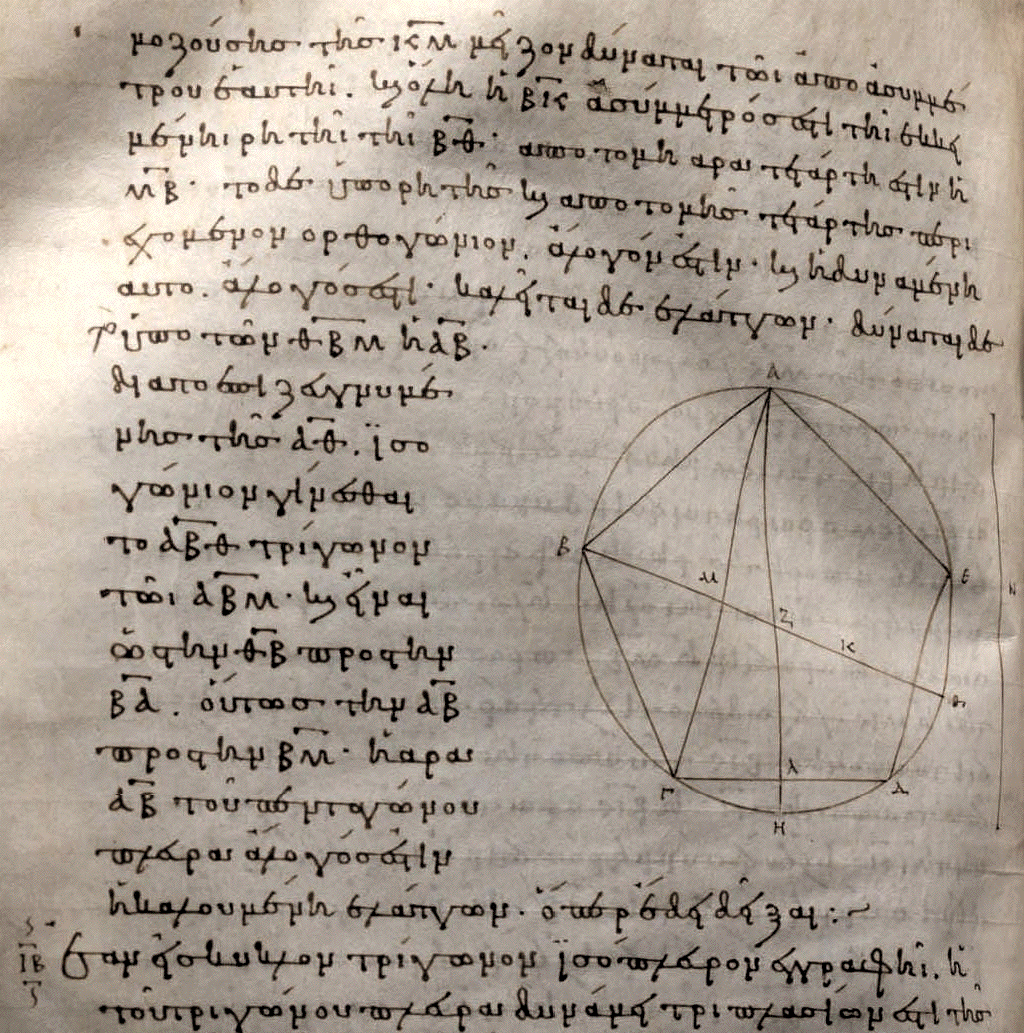 μοζούσης τῆς ΚΜ μεῖζον δύναται τῶι ἀπο ἀσυμμέ
τρου ἑαυτῆι. καὶ ὅλη ἡ ΒΚ ἀσύμμετρός ἐστι τῆι ἐκκει
μένηι ρητῆι τῆι ΒΘ· αποτομη αρα τετάρτη ἐστὶν ἡ
ΜΒ· το δε ὑπο ρητῆς καὶ αποτομῆς τετάρτης περι
εχόμενον ορθογώνιον. ἄλογόν ἐστιν· καὶ ἡ δυναμένη
αυτο. ἄλογός ἐστι· καλεῖται δε ελάττων· δύναται δε
το ὑπο τῶν ΘΒΜ ἡ ΑΒ·
δια το ἐπιζευγνυμέ
νης τῆς ΑΘ. ϊσο
γώνιον γίνεσθαι
το ΑΒΘ τρίγωνον
τῶι ΑΒΜ· καὶ εἶναι
ὡς την ΘΒ προς την
ΒΑ. οὕτως την ΑΒ
προς την ΒΜ· ἡ αρα
ΑΒ τοῦ πενταγώνου
πλευρα ἄλογός ἐστιν
ἡ καλουμένη ελάττων· ὅπερ ἔδει δεῖξαι :~
ΙΒ Εαν εἰς κυκλον τρίγωνον ϊσόπλευρον ἐγγραφῆι. ἡ
τοῦ τριγώνου πλευρα δυνάμει τριπλασίων ἐστὶ τῆς
Α
Β
Μ
Ε
Ν
Ζ
Κ
Θ
Λ
Γ
Δ
Η